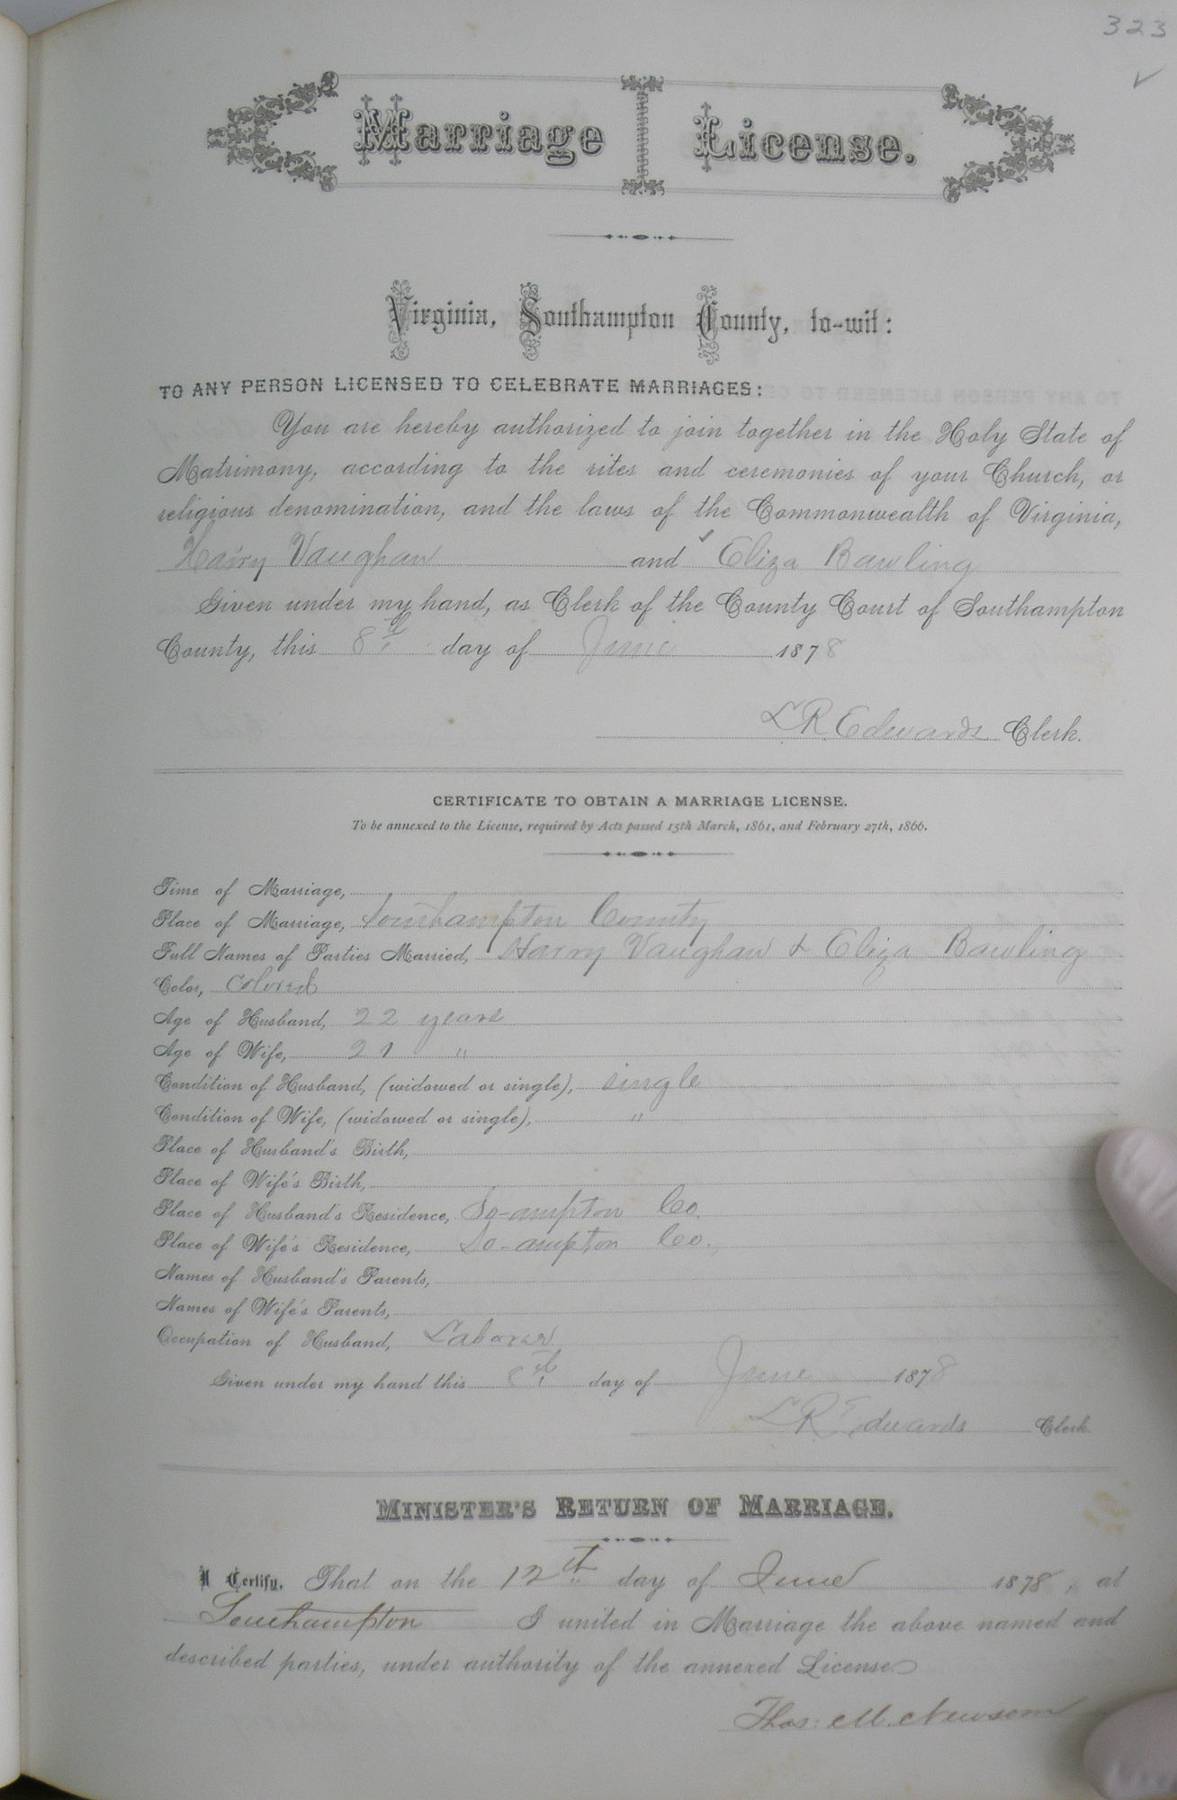 323
✓
Marriage License.
Virginia, Southampton County, to-wit:
TO ANY PERSON LICENSED TO CELEBRATE MARRIAGES:
You are hereby authorized to join together in the Holy State of
Matrimony, according to the rites and ceremonies of your Church, or
religious denomination, and the laws of the Commonwealth of Virginia,
Harry Vaughan and Eliza Bawling
Given under my hand, as Clerk of the County Court of Southampton
County, this 8th day of June 1878
L R Edwards Clerk.
CERTIFICATE TO OBTAIN A MARRIAGE LICENSE.
To be annexed to the License, required by Acts passed 15th March, 1861, and February 27th, 1866.
Time of Marriage,
Place of Marriage, Southampton County
Full Names of Parties Married, Harry Vaughan & Eliza Bawling
Color, Colored
Age of Husband, 22 years
Age of Wife, 21 "
Condition of Husband, (widowed or single), single
Condition of Wife, (widowed or single), "
Place of Husband's Birth,
Place of Wife's Birth,
Place of Husband's Residence, So-ampton Co.
Place of Wife's Residence, So-ampton Co.
Names of Husband's Parents,
Names of Wife's Parents,
Occupation of Husband, Laborer
Given under my hand this 8th day of June 1878
L R Edwards Clerk
MINISTER'S RETURN OF MARRIAGE.
I Certify, That on the 12th day of June 1878, at
Southampton I united in Marriage the above named and
described parties, under authority of the annexed License
Thos. M. Newsom